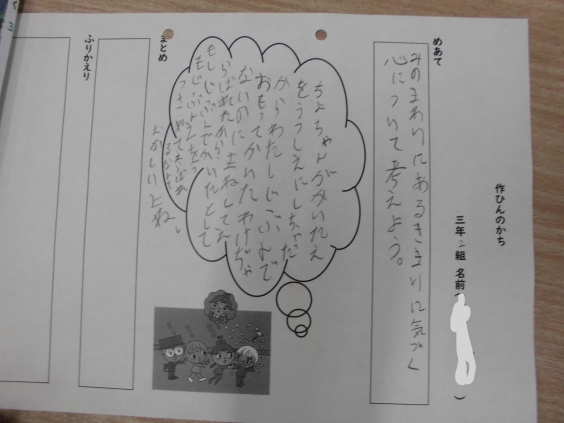 作ひんのかち
三年二組 名前（ ）
めあて
みのまわりにあるきまりに気づく
心について考えよう。
ちよちゃんがかいたえ
をうつしえにしちゃだ
からわたしじしんで
おもってかいたわけじゃ
ないのに まねしてえ
らばれたから
もしじぶんでかいたとして
もじぶん
おかしいよね。
まとめ
ふりかえり